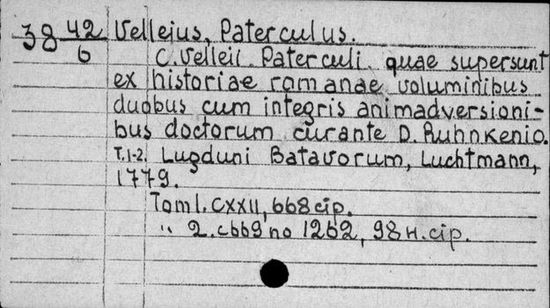 38 42/6 Velleius, Paterculus.
C. Velleii Paterculi quae supersunt
ex historiae romanae voluminibus
duobus cum integris animadversioni-
bus doctorum curante D. Ruhnkenio.
T.1-2. Lugduni Batavorum, Luchtmann,
1779.
Tom 1. CXXII, 668 сір.
" 2. с 669 по 1262, 98 н. сір.